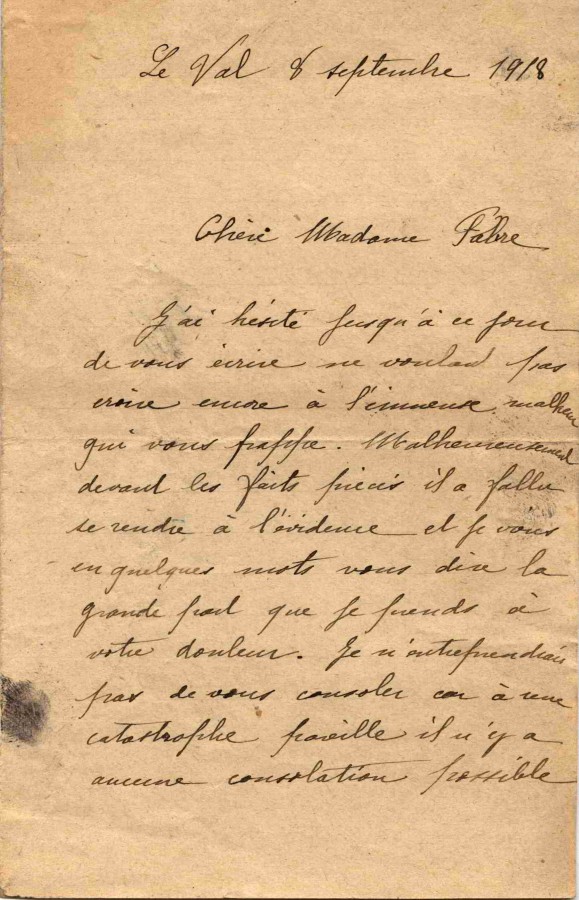 Le Val 8 septembre 1918
Chère Madame Fabre
J'ai hésité jusqu'à ce jour
de vous écrire ne voulant pas
croire encore à l'immense malheur
qui vous frappe. Malheureusement
devant les faits précis il a fallu
se rendre à l'évidence et je viens
en quelques mots vous dire la
grande part que je prends à
votre douleur. Je n'entreprendrais
pas de vous consoler car à une
catastrophe pareille il n'y a
aucune consolation possible